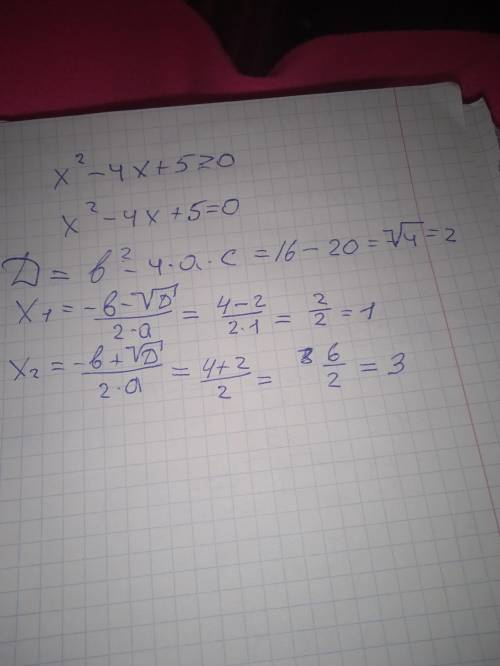 x² - 4x + 5 ≥ 0
x² - 4x + 5 = 0
D = b² - 4·a·c = 16 - 20 = √4 = 2
x₁ = (-b - √D)/(2·a) = (4 - 2)/(2·1) = 2/2 = 1
x₂ = (-b + √D)/(2·a) = (4 + 2)/2 = 6/2 = 3